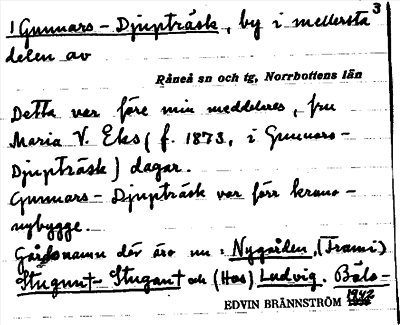 3
1 Gunnars-Djupträsk, by i mellersta
delen av
Råneå sn och tg, Norrbottens län
Detta var före min meddelares, fru
Maria V. Eks (f. 1873, i Gunnars-
Djupträsk) dagar.
Gunnars-Djupträsk var förr krono-
nybygge.
Gårdsnamn där äro nu: Nygården, (Frami)
och (Hos) Ludvig. Bälo-
EDVIN BRÄNNSTRÖM 1942